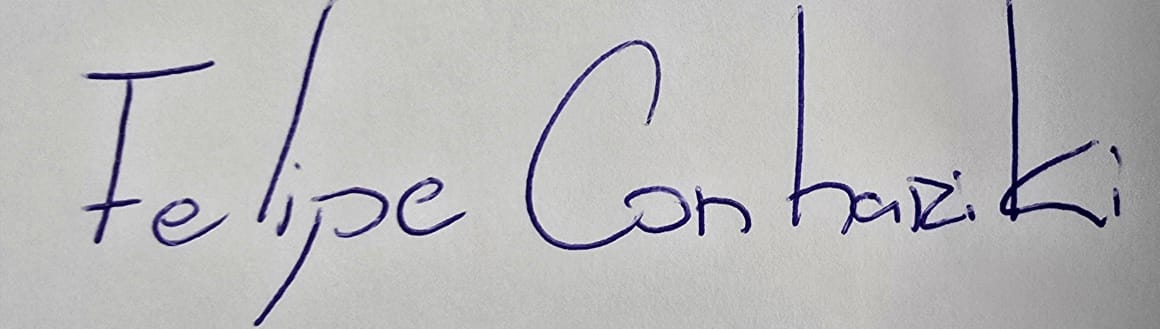 Felipe Conhaziki